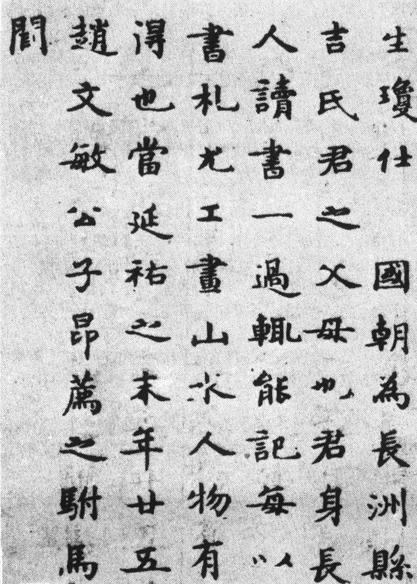 生瓊仕　國朝為長洲縣
吉氏君之父母也君身長
人讀書一過輒能記每以
書札尤工畫山水人物有
得也當延祐之末年廿五
趙文敏公子昂薦之駙馬